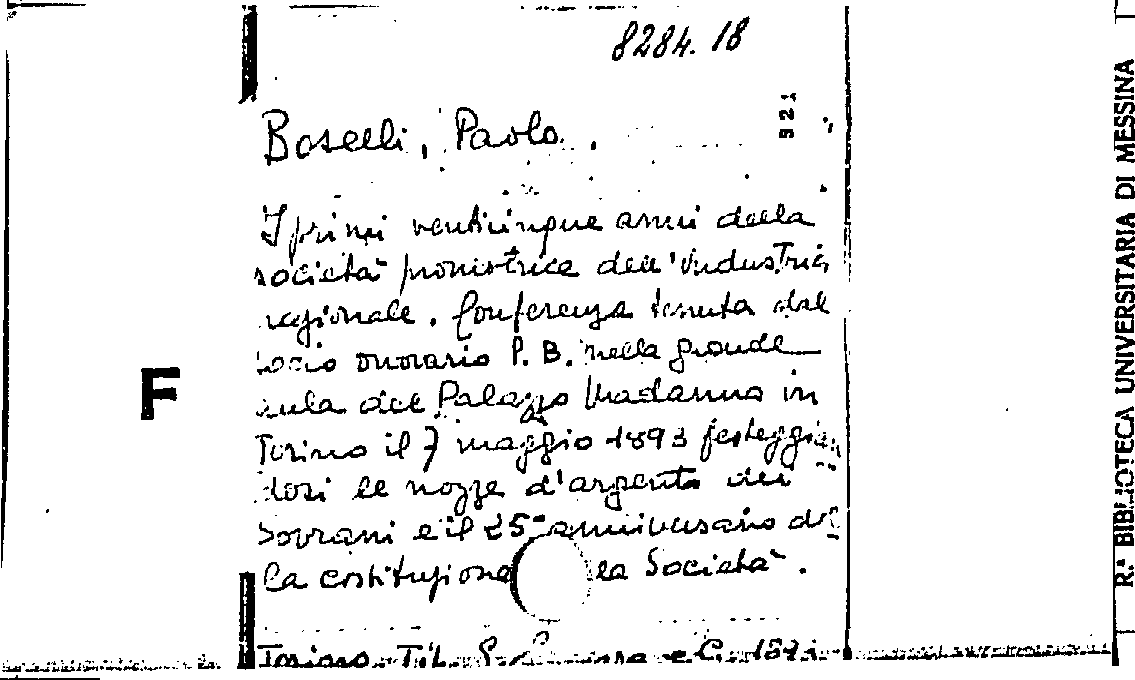 8284.18
321
Boselli, Paolo.
I primi venticinque anni della
società promotrice dell'industria
regionale. Conferenza tenuta dal
socio onorario P. B. nella grande
aula del Palazzo Madama in
Torino il 7 maggio 1893 festeggian
dosi le nozze d'argento dei
Sovrani e il 25° anniversario del
la costituzione la Società.
Torino, Tip. e C. 1893
F
R.ª BIBLIOTECA UNIVERSITARIA DI MESSINA